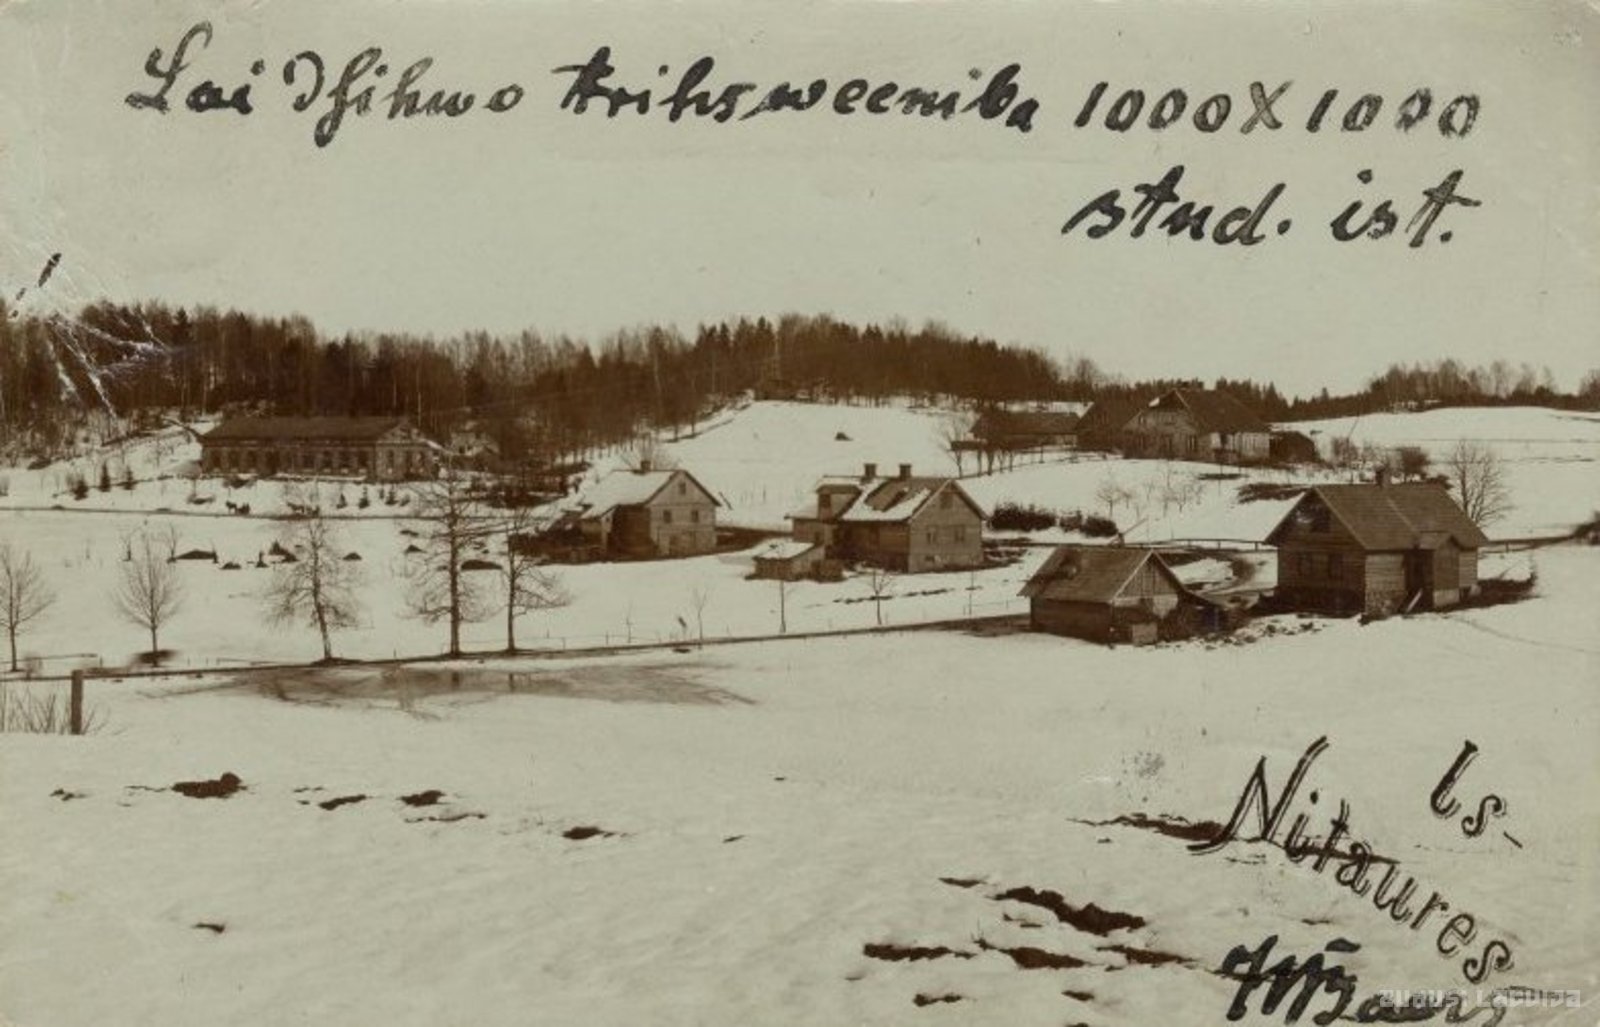 Lai Dsihwo trihsweeniba 1000X1000
stud. ist.
Is-
Nitaures
ZUDUSI LATVIJA